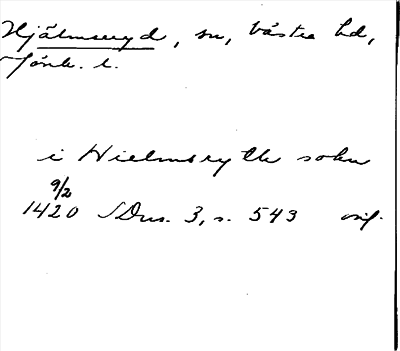 Hjälmseryd, sn, Västra hd,
Jönk. l.
i Hielmsrydh sokn
9/2
1420 SDns. 3, s. 543 orig.